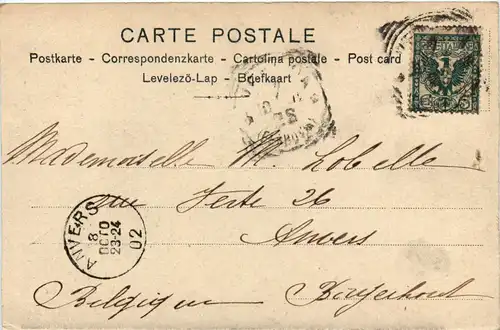 CARTE POSTALE
Postkarte - Correspondenzkarte - Cartolina postale - Post card
Levelező-Lap - Briefkaart
Mademoiselle M. Lobelle
rue Verte 26
Anvers
Belgique Borgerhout
ANVERS
8
OCTO
23-24
02